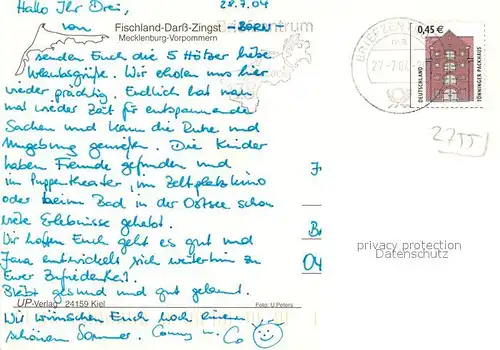 Hallo Ihr Drei, 28.7.04
von Fischland-Darß-Zingst -BORN-
Mecklenburg-Vorpommern
senden Euch die 5 Hötzer liebe
Urlaubsgrüße. Wir erholen uns hier
wieder prächtig. Endlich hat man
mal wieder Zeit für entspannende
Sachen und kann die Ruhe und
Umgebung genießen. Die Kinder
haben Freunde gefunden und
im Puppentheater, im Zeltplatzkino
oder beim Bad in der Ostsee schon
viele Erlebnisse gehabt.
Wir hoffen Euch geht es gut und
Jana entwickelt sich weiterhin zu
Eurer Zufriedenheit.
Bleibt gesund und gut gelaunt.
UP-Verlag 24159 Kiel Foto: U.Peters
Wir wünschen Euch noch einen
schönen Sommer. Conny u. Co
BRIEFZENTRUM
0,45 €
DEUTSCHLAND
TÖNNINGER PACKHAUS
2755
privacy protection
Datenschutz